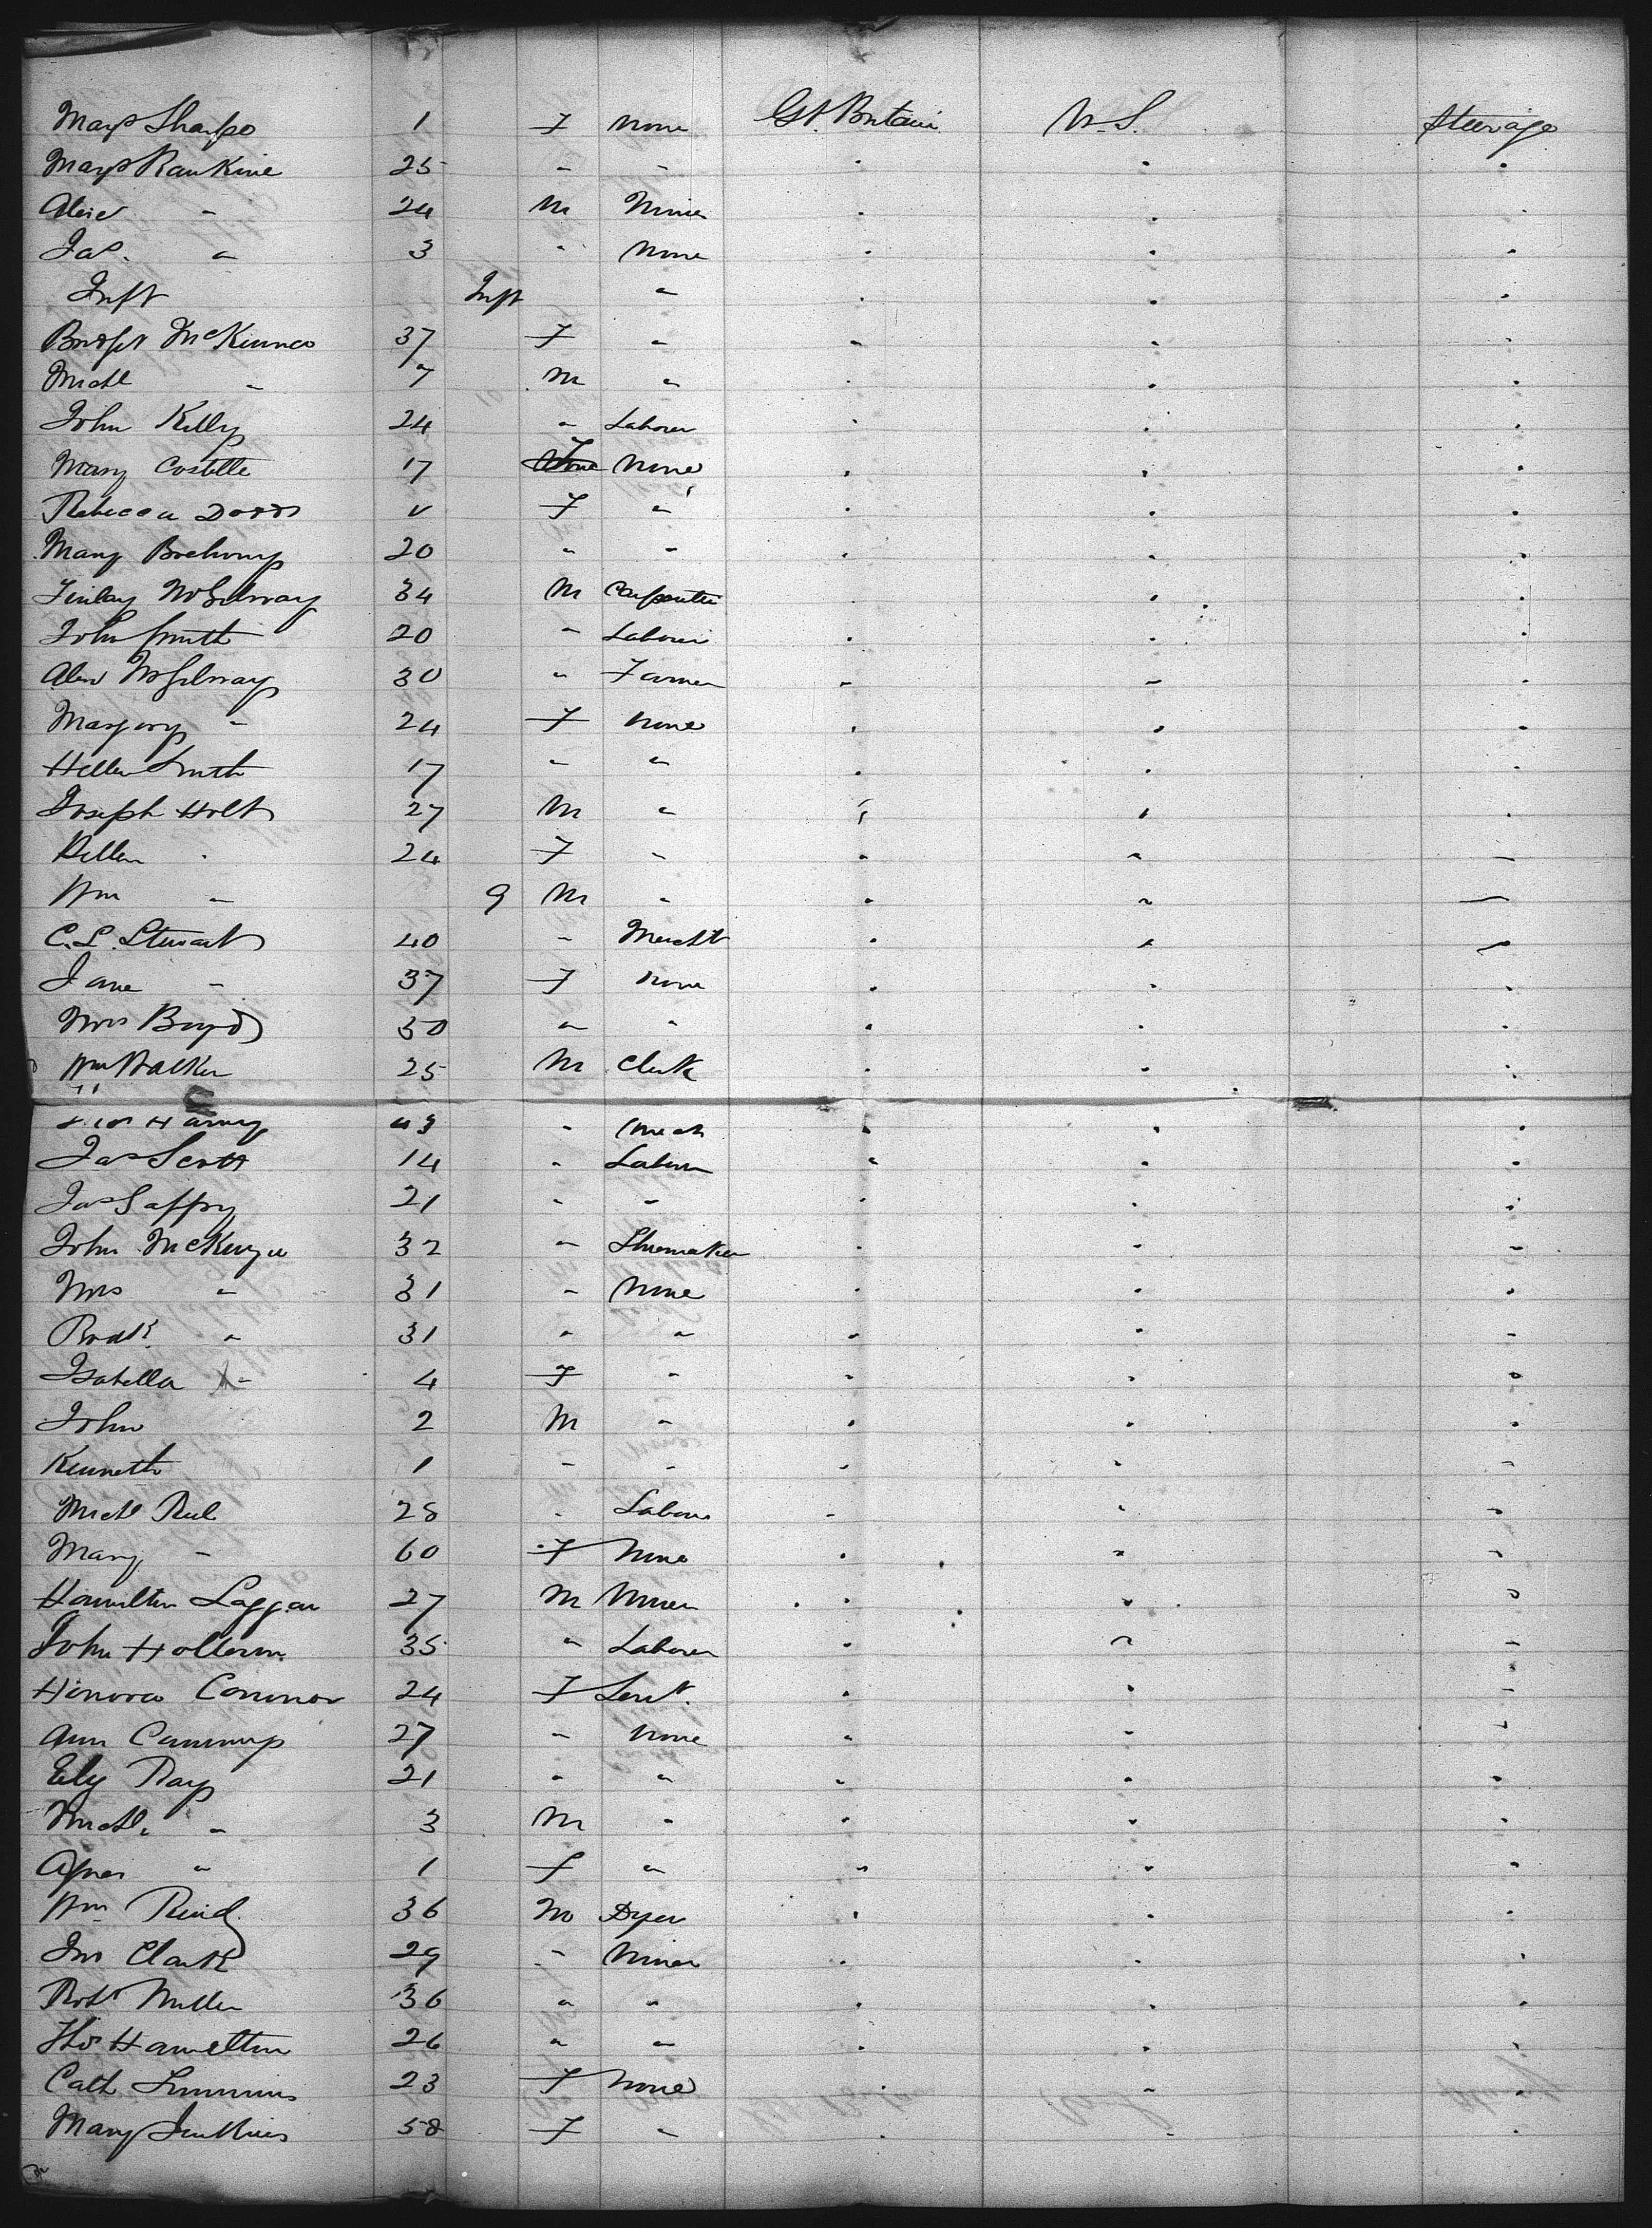 Mary Sharpe 1 F None Gt. Britain U.S. Steerage
Mary Rankine 25 " "
Alex " 24 M Miner
Jas. " 3 " None
Inft Inft "
Bridget McKinnes 37 F "
Michl " 7 M "
John Kelly 24 " Laborer
Mary Costello 17 F None
Rebecca Dodds " F "
Mary 20 " "
Finlay McGilvray 34 M Carpenter
John Smith 20 " Laborer
Alex McGilvray 30 " Farmer
Margery " 24 F None
Hellen Smith 17 " "
Joseph Holt 27 M "
Hellen " 24 F "
Wm " 9 M "
C. L. Stewart 40 " Mercht
Jane " 37 F None
Mrs Boyd 30 " "
Wm Walker 25 M Clerk
43 " Mech
Jas Scott 14 " Laborer
Jas Gaffny 21 " "
John McKenzie 32 " Shoemaker
Mrs " 31 " None
" 31 " "
Isabella " 4 F "
John 2 M "
Kenneth 1 " "
Michl 28 " Laborer
Mary " 60 F None
Hamilton Laggan 27 M Miner
John Holleran 35 " Laborer
Honora Connor 24 F Servt.
Ann Cummings 27 " None
Ely Ray 21 " "
Michl. " 3 M "
Agnes " 1 F "
Wm Reid 36 M Dyer
Jno Clark 29 " Miner
Robt Miller 36 " "
Thos Hamelton 26 " "
Cath Simmins 23 F None
Mary Jenkins 58 F "